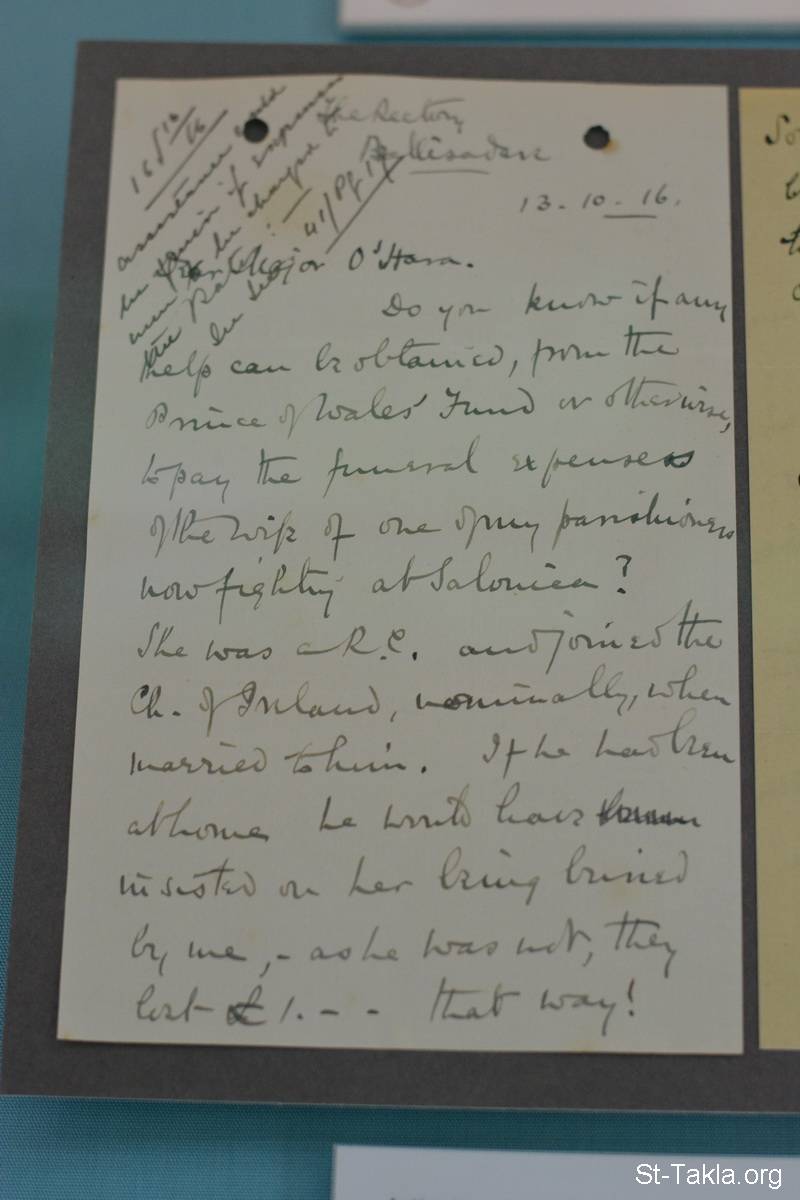 The Rectory
Ballisadare
13-10-16.
16/10/16
assistance could
be given if expenses
were to be charged to
the
41/Pf 17
Dear Major O'Hara.
Do you know if any
help can be obtained, from the
Prince of Wales' Fund or otherwise,
to pay the funeral expenses
of the wife of one of my parishioners
now fighting at Salonica?
She was a R.C. and joined the
Ch. of Ireland, nominally, when
married to him. If he had been
at home he would have
insisted on her being buried
by me,- as he was not, they
lost £1.-- that way!
So
St-Takla.org